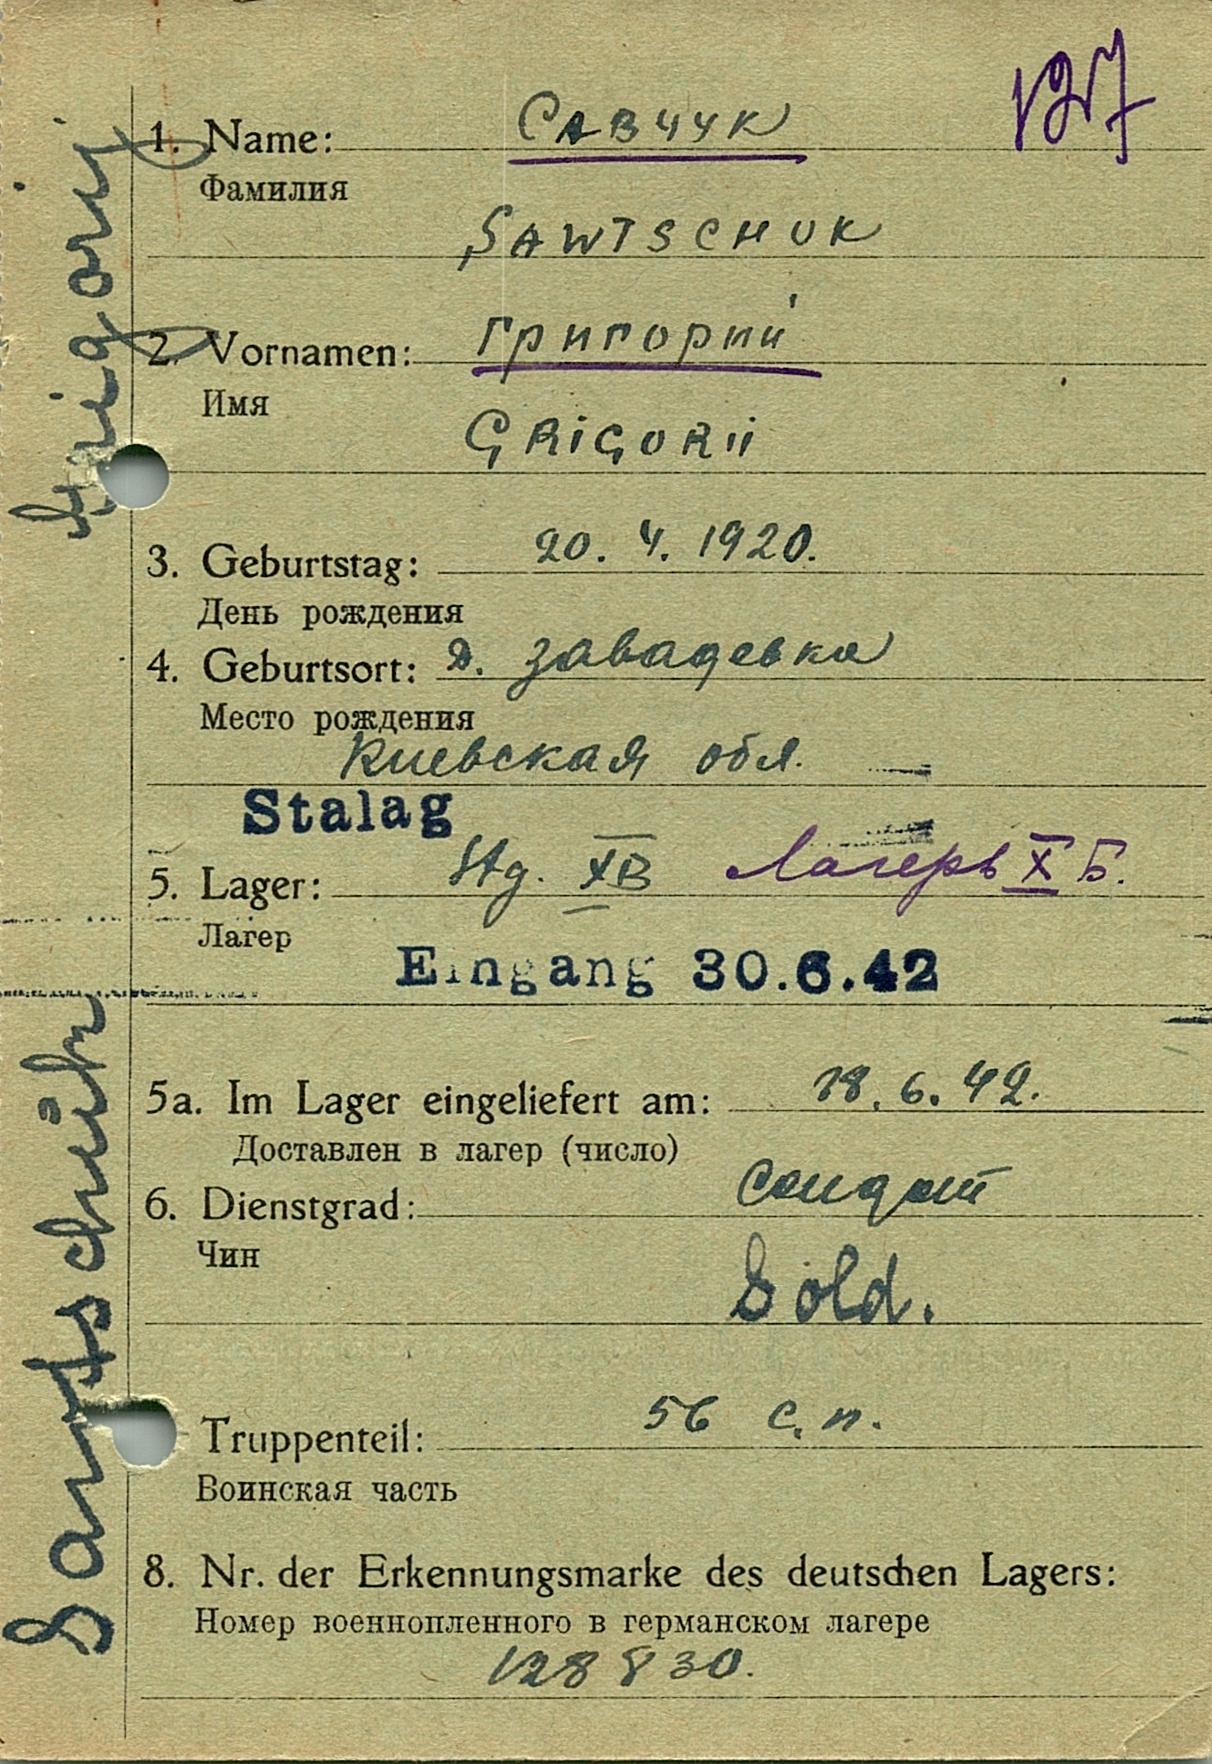 127
1. Name: САВЧУК
Фамилия
SAWTSCHUK
2. Vornamen: Григорий
Имя
GRIGORII
3. Geburtstag: 20. 4. 1920.
День рождения
4. Geburtsort: д. Завадевка
Место рождения
Киевская обл.
Stalag
5. Lager: Stg. XB Лагерь X Б.
Лагер
Eingang 30.6.42
5a. Im Lager eingeliefert am: 18. 6. 42.
Доставлен в лагер (число)
6. Dienstgrad: солдат
Чин
Sold.
Truppenteil: 56 с.п.
Воинская часть
8. Nr. der Erkennungsmarke des deutschen Lagers:
Номер военнопленного в германском лагере
128830.
Sawtschuk Grigorij